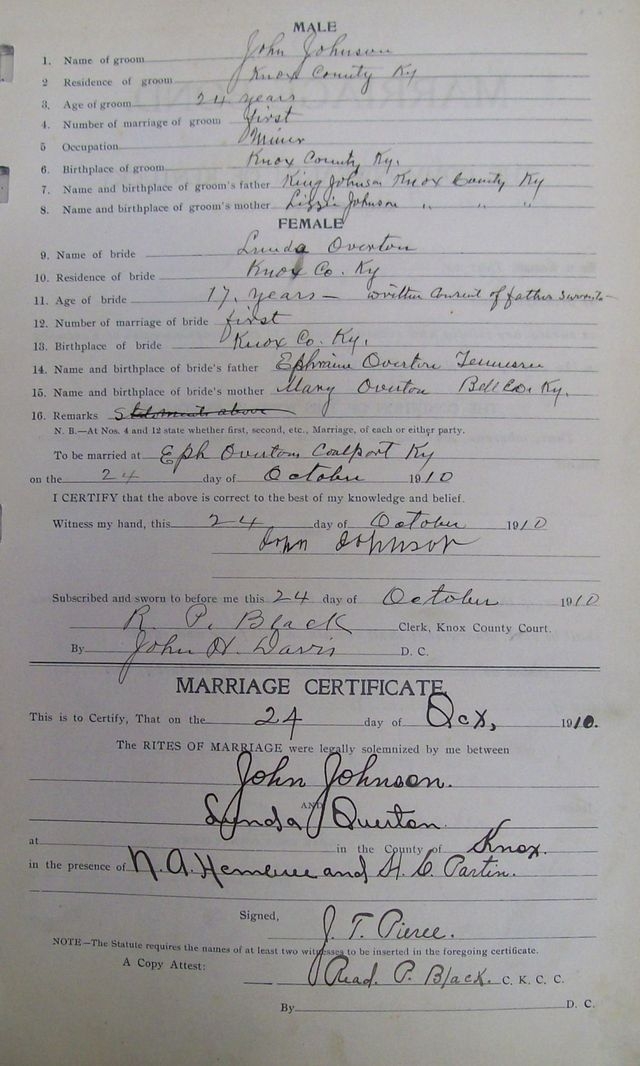 MALE
1. Name of groom John Johnson
2 Residence of groom Knox County Ky
3. Age of groom 24 years
4. Number of marriage of groom first
5 Occupation Miner
6. Birthplace of groom Knox County Ky.
7. Name and birthplace of groom's father King Johnson Knox County Ky
8. Name and birthplace of groom's mother Lizzie Johnson " " "
FEMALE
9. Name of bride Lunda Overton
10. Residence of bride Knox Co. Ky
11. Age of bride 17. years — written consent of father
12. Number of marriage of bride first
13. Birthplace of bride Knox Co. Ky.
14. Name and birthplace of bride's father Ephraim Overton Tennessee
15. Name and birthplace of bride's mother Mary Overton Bell Co. Ky.
16. Remarks Statements above
N. B.—At Nos. 4 and 12 state whether first, second, etc., Marriage, of each or either party.
To be married at Eph Overtons Coalport Ky
on the 24 day of October 1910
I CERTIFY that the above is correct to the best of my knowledge and belief.
Witness my hand, this 24 day of October 1910
John Johnson
Subscribed and sworn to before me this 24 day of October 1910
R. P. Black Clerk, Knox County Court.
By John H. Davis D. C.
MARRIAGE CERTIFICATE
This is to Certify, That on the 24 day of Oct, 1910.
The RITES OF MARRIAGE were legally solemnized by me between
John Johnson.
AND
Lynda Overton
at in the County of Knox.
in the presence of N. A. and H. C. Partin.
Signed, J. T. Pierce.
NOTE—The Statute requires the names of at least two witnesses to be inserted in the foregoing certificate.
A Copy Attest: Read. P. Black. C. K. C. C.
By D. C.